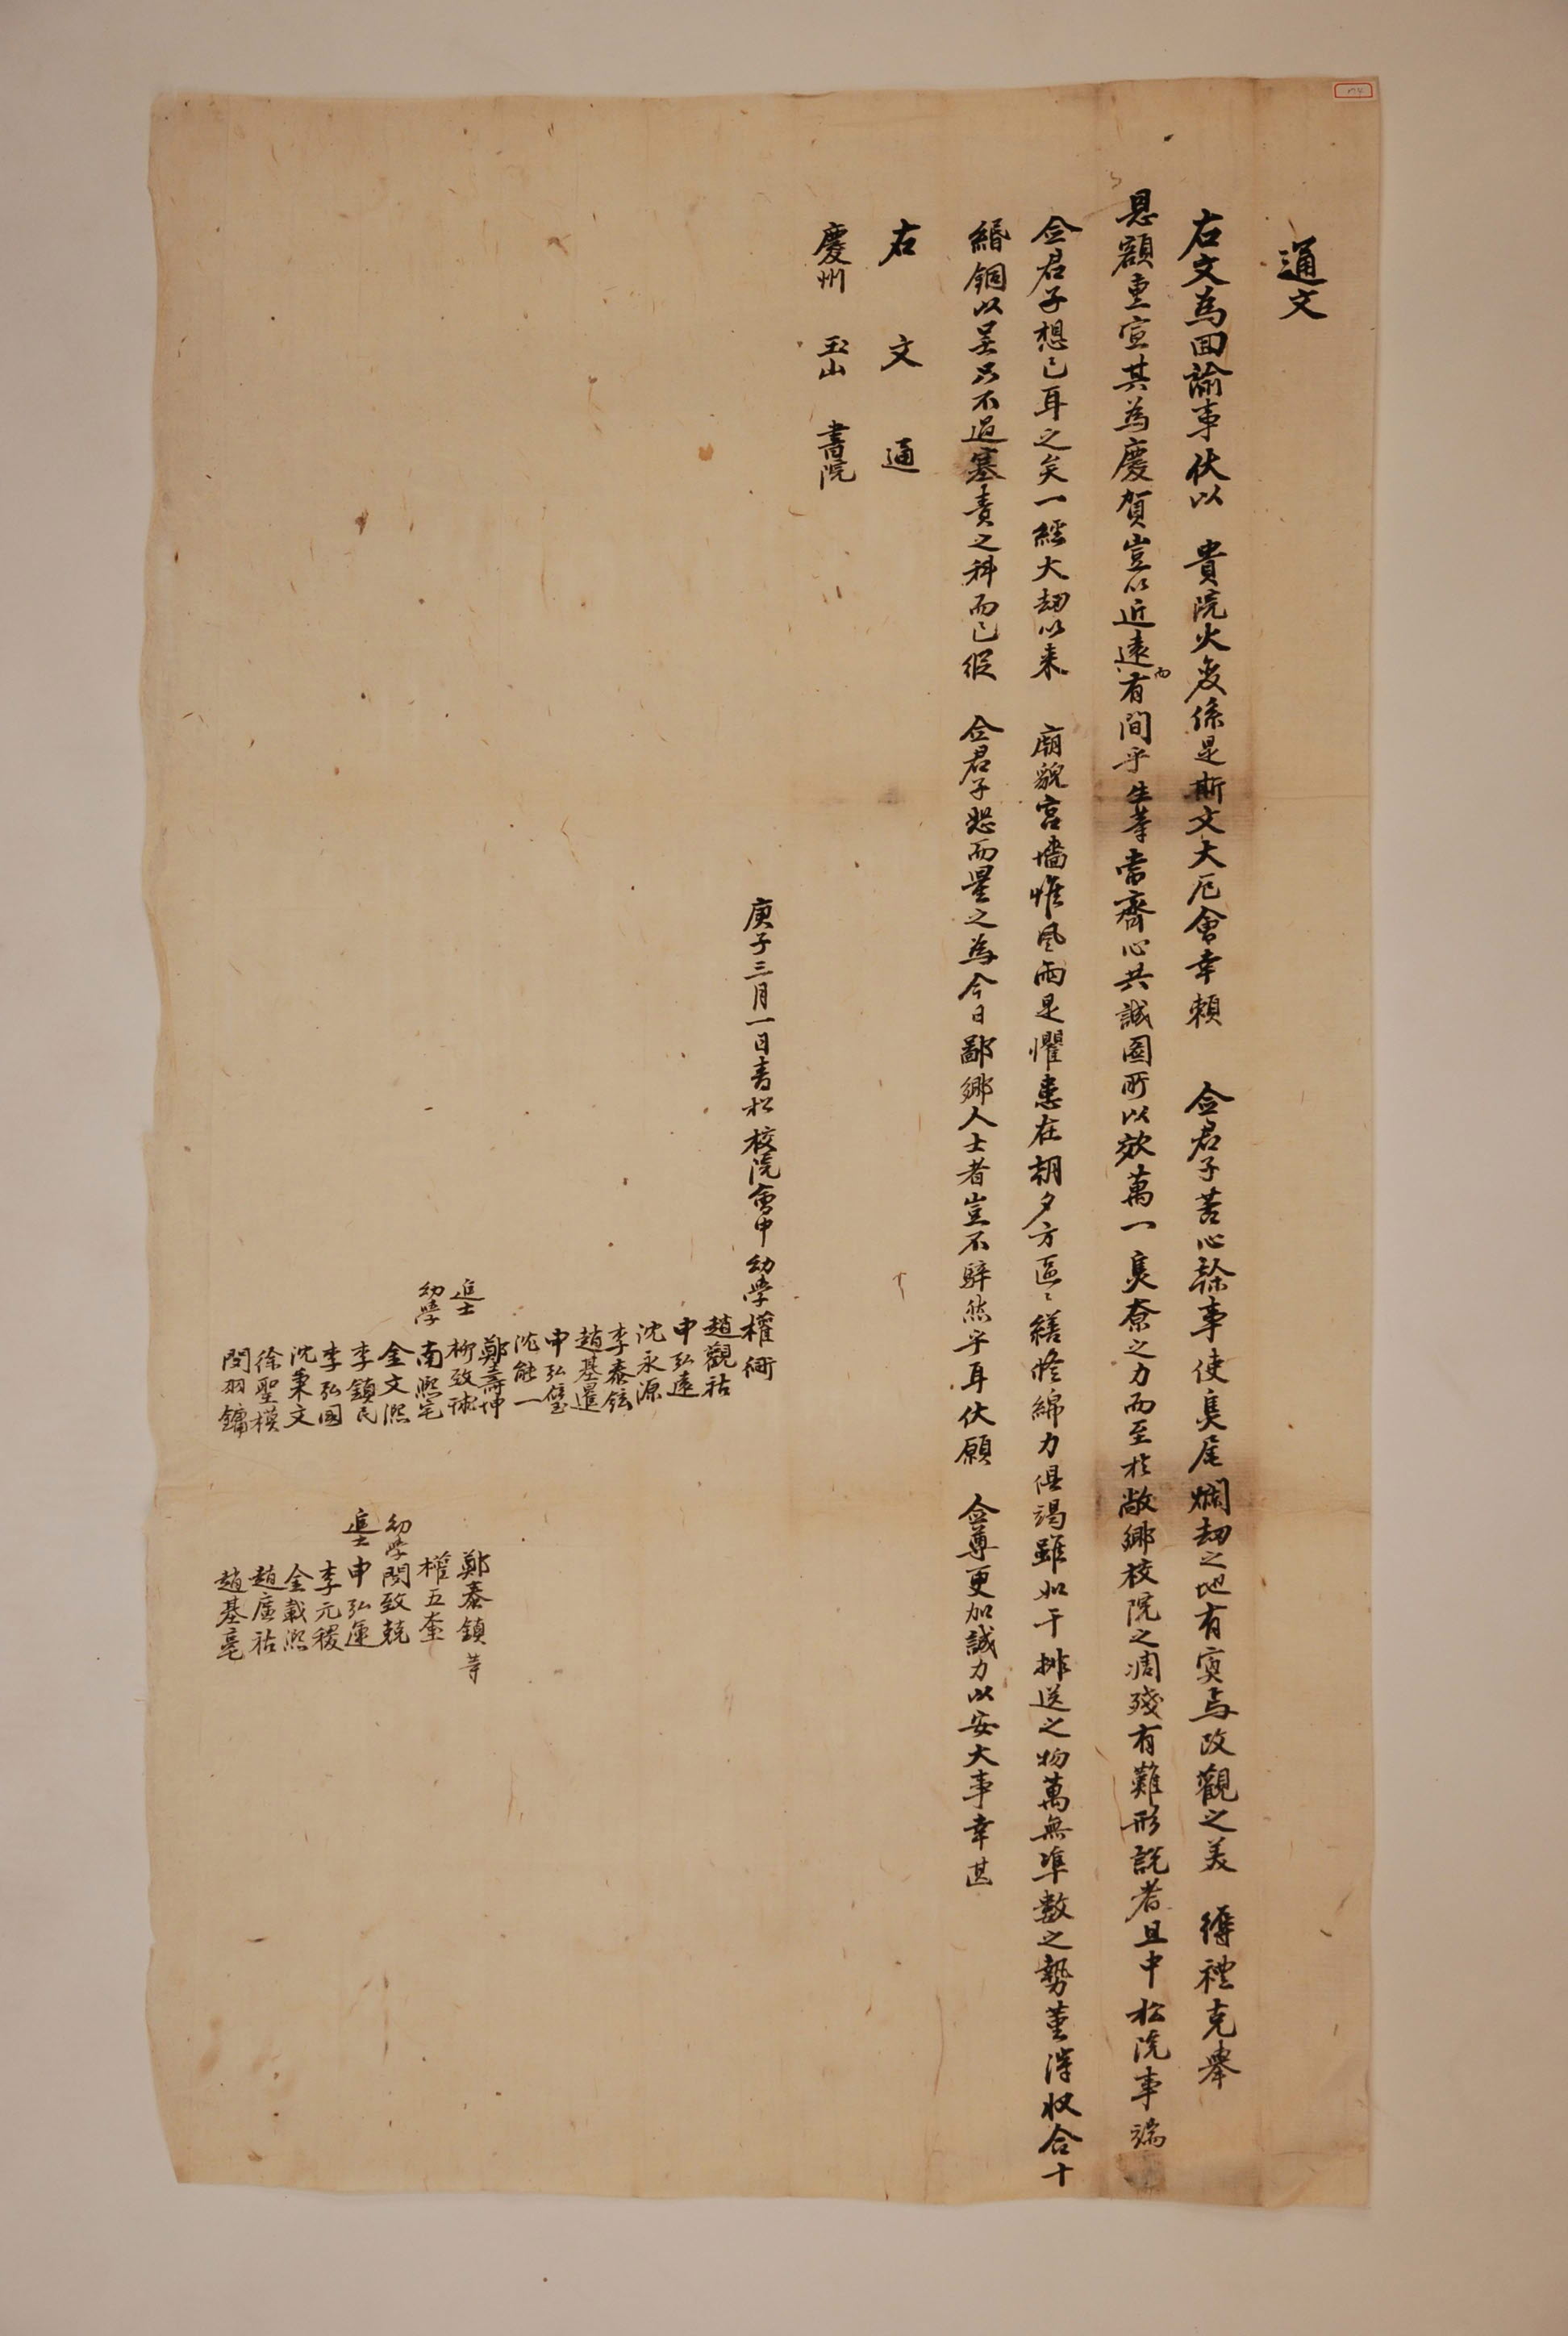 通文
右文為回諭事伏以 貴院火變係是斯文大厄會幸賴 僉君子苦心幹事使煨尾爛刼之地有寅與改觀之美 縟禮克擧
恩額重宣其為慶賀豈以近遠而有間乎生等當齊心共誠圖所以效萬一奧奈之力而至於敝鄉校院之凋殘有難形說者且中松院事端
僉君子想已耳之矣一經大刼以來 廟貌宮墻惟風雨是懼患在朝夕方區區繕修綿力俱渴雖如干排送之物萬無準數之勢董淂收合十
緡銅以呈只不過塞責之科而已 僉君子恕而量之為今日鄙鄉人士者豈不騂然乎耳伏願 僉尊更加誠力以安大事幸甚
右文通
慶州 玉山 書院
庚子三月一日青松校院會中幼學權衕
趙觀祜
申弘遠
沈永源
李泰鉉
趙基暹
申弘璧
沈能一
鄭壽坤
進士 柳致球
幼學 南熙宅
金文熙
李鎭民
李弘國
沈秉文
徐聖模
閔羽鏞
鄭泰鎭等
權五奎
幼學閔致兢
進士申弘運
李元稷
金載熙
趙廣祜
趙基亳